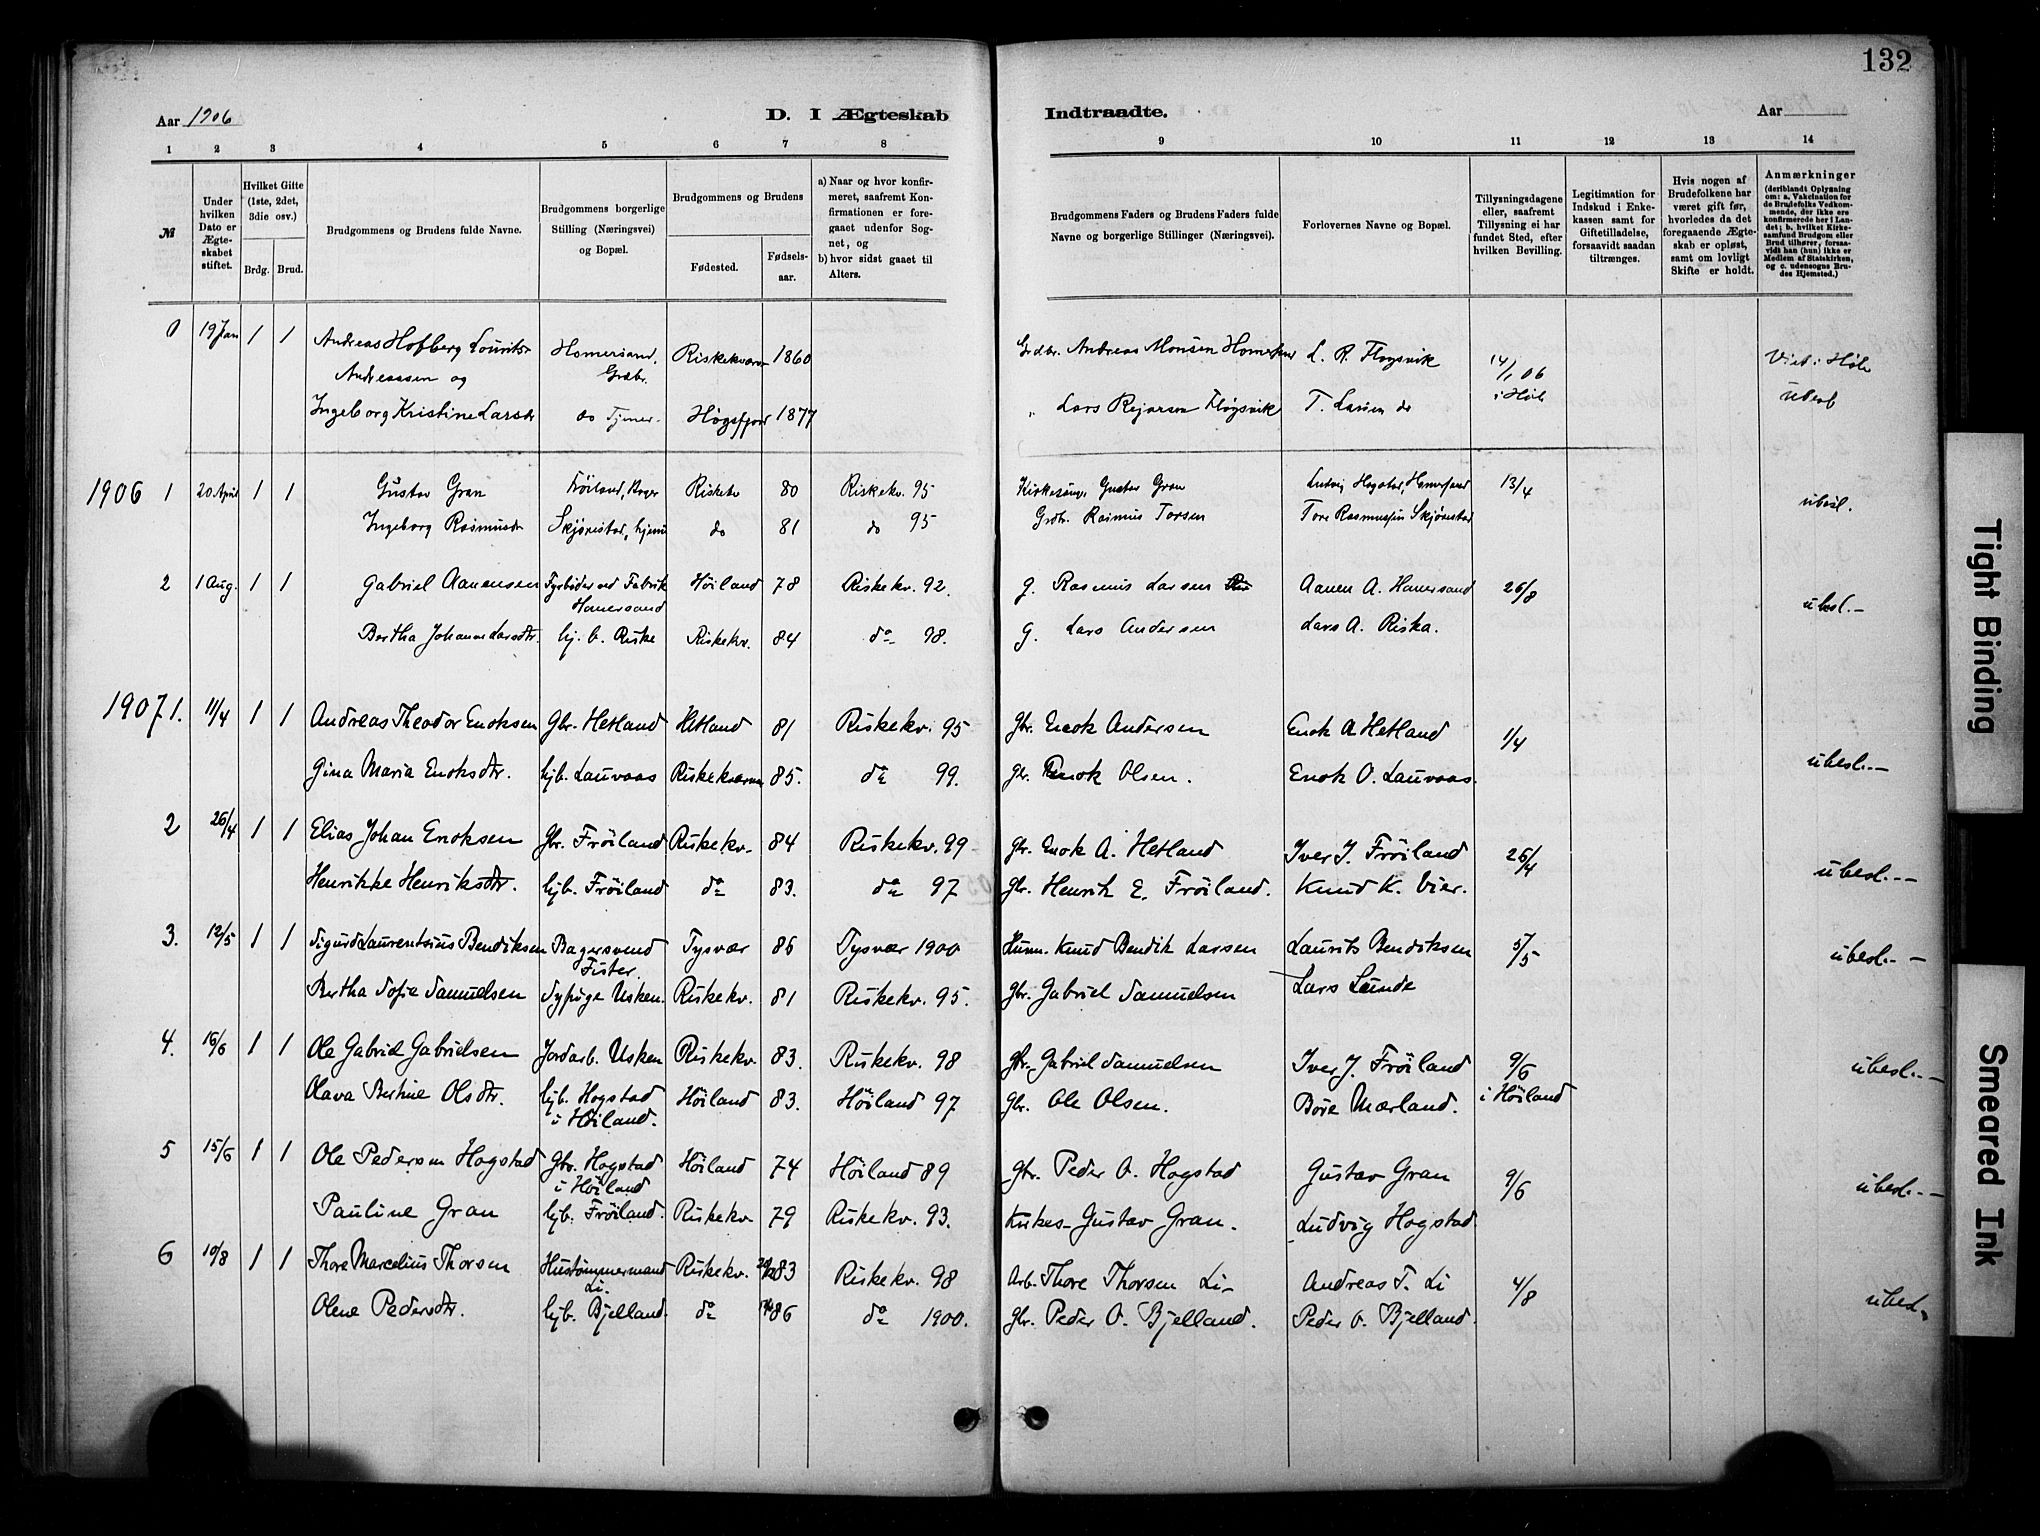 132
Aar 1906 D. I Ægteskab Indtraadte. Aar
1 2 3 4 5 6 7 8 9 10 11 12 13 14
№
Under hvilken Dato er Ægteskabet stiftet.
Hvilket Gifte (1ste, 2det, 3die osv.)
Brdg. Brud.
Brudgommens og Brudens fulde Navne.
Brudgommens borgerlige Stilling (Næringsvei) og Bopæl.
Brudgommens og Brudens
Fødested. Fødsels-aar.
a) Naar og hvor konfirmeret, saafremt Konfirmationen er foregaaet udenfor Sognet, og
b) hvor sidst gaaet til Alters.
Brudgommens Faders og Brudens Faders fulde Navne og borgerlige Stillinger (Næringsvei).
Forlovernes Navne og Bopæl.
Tillysningsdagene eller, saafremt Tillysning ei har fundet Sted, efter hvilken Bevilling.
Legitimation for Indskud i Enkekassen samt for Giftetilladelse, forsaavidt saadan tiltrænges.
Hvis nogen af Brudefolkene har været gift før, hvorledes da det foregaaende Ægteskab er opløst, samt om lovligt Skifte er holdt.
Anmærkninger
(deriblandt Oplysning om: a. Vakcination for de Brudefolks Vedkommende, der ikke ere konfirmerede her i Landet; b. hvilket Kirkesamfund Brudgom eller Brud tilhører, forsaavidt han (hun) ikke er Medlem af Statskirken, og c. udensogns Brudes Hjemsted.)
0 19 Jan 1 1 Andreas Hofberg Lourits Homersand, Riskekværn 1860 Grdbr. Andreas Monsen L. R. Fløgsvik 14/1 06 Viet i Høle
Andreassen og Grdbr. i Høle
Ingeborg Kristine Larsdtr do Tjener Høgsfjord 1877 " Lars Rejarsen Fløgsvik T. Larsen do
1906 1 20 April 1 1 Gustav Gran Frøiland, Riskekv 80 Riskekv. 95 Kirkesang. Gustav Gran Ludvig Hogstad, 13/4 ubesl.
Ingeborg Rasmusdtr Skjørestad, do 81 do 95 Grdbr. Rasmus Torsen Tore Rasmussen Skjørestad
2 1 Aug. 1 1 Gabriel Aanensen Fyrbøder ved Fabrik Høiland 78 Riskekv. 92. g. Rasmus Larsen Aanen A. Hanersand 26/8 ubesl.-
Hanersand
Bertha Johanne Larsdtr. hj. b. Riske Riskekv. 84 do 98. g. Lars Andersen Lars A. Riska.
1907 1. 11/4 1 1 Andreas Theodor Enoksen Gbr. Hetland Hetland 81 Riskekv. 95 gbr. Enok Andersen Enok A Hetland 1/4 ubesl.-
Gina Maria Enoksdtr. hjb. Lauvaas Riskekværn 85. do 99. gbr. Enok Olsen. Enok O. Lauvaas.
2 26/4 1 1 Elias Johan Enoksen Gbr. Frøiland Riskekv. 84 Riskekv. 99 gbr. Enok A. Hetland Iver J. Frøiland 26/4 ubesl.-
Henrikke Henriksdtr. hjb. Frøiland do 83. do 97 gbr. Henrik E. Frøiland. Knud K. Vier.
3. 12/5 1 1 Sigurd Laurentsius Bendiksen Bagersvend Tysvær 86 Tysvær 1900 Husm. Knud Bendik Larsen Laurits Bendiksen 5/5 ubesl.-
Fister.
Bertha Sofie Samuelsen Sypige Usken. Riskekv. 81 Riskekv. 95. gbr. Gabriel Samuelsen Lars Lunde
4. 16/6 1 1 Ole Gabriel Gabrielsen Jordarb. Usken Riskekv. 83. Riskekv. 98 gbr. Gabriel Samuelsen Iver J. Frøiland 9/6 ubesl.-
Olava Bertine Olsdtr. hjb. Hogstad Høiland 83. Høiland 97 gbr. Ole Olsen. Børe Mærland. i Høiland
i Høiland.
5 15/6 1 1 Ole Pedersen Hogstad Gbr. Hogstad Høiland 74 Høiland 89 gbr. Peder O. Hogstad Gustav Gran 9/6 ubesl.-
i Høiland
Pauline Gran hjb. Frøiland. Riskekv. 79 Riskekv. 93. Kirkes. Gustav Gran. Ludvig Hogstad
6 10/8 1 1 Thore Marcelius Thorsen Hustømmermand Riskekv. 83 Riskekv. 98 Arb. Thore Thorsen Li- Andreas T. Li 4/8 ubesl.
Li.
Olene Pedersdtr. hjb. Bjelland. do 86 do 1900. gbr. Peder O. Bjelland. Peder O. Bjelland.
Tight Binding
Smeared Ink